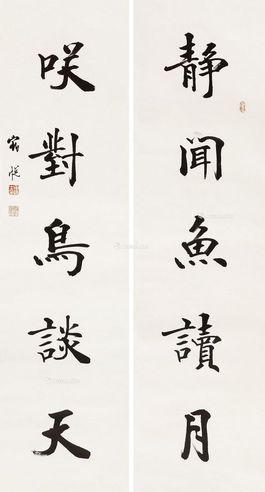 静聞魚讀月
咲對鳥談天